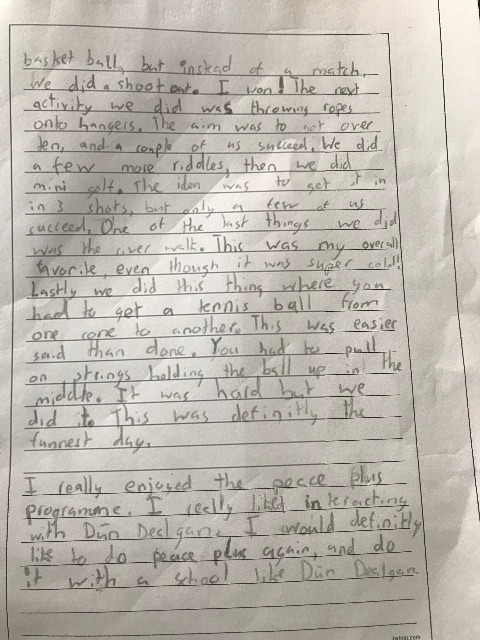 basket ball, but instead of a match,
we did a shoot out. I won! The next
activity we did was throwing ropes
onto hangers. The aim was to get over
ten, and a couple of us succeed. We did
a few more riddles, then we did
mini golf. The idea was to get it in
in 3 shots, but only a few of us
succeed. One of the last things we did
was the river walk. This was my overall
favorite, even though it was super cold!
Lastly we did this thing where you
had to get a tennis ball from
one cone to another. This was easier
said than done. You had to pull
on strings holding the ball up in the
middle. It was hard but we
did it. This was definitly the
funnest day.
I really enjoyed the peace plus
programme. I really liked interacting
with Dún Dealgan. I would definitly
like to do peace plus again, and do
it with a school like Dún Dealgan